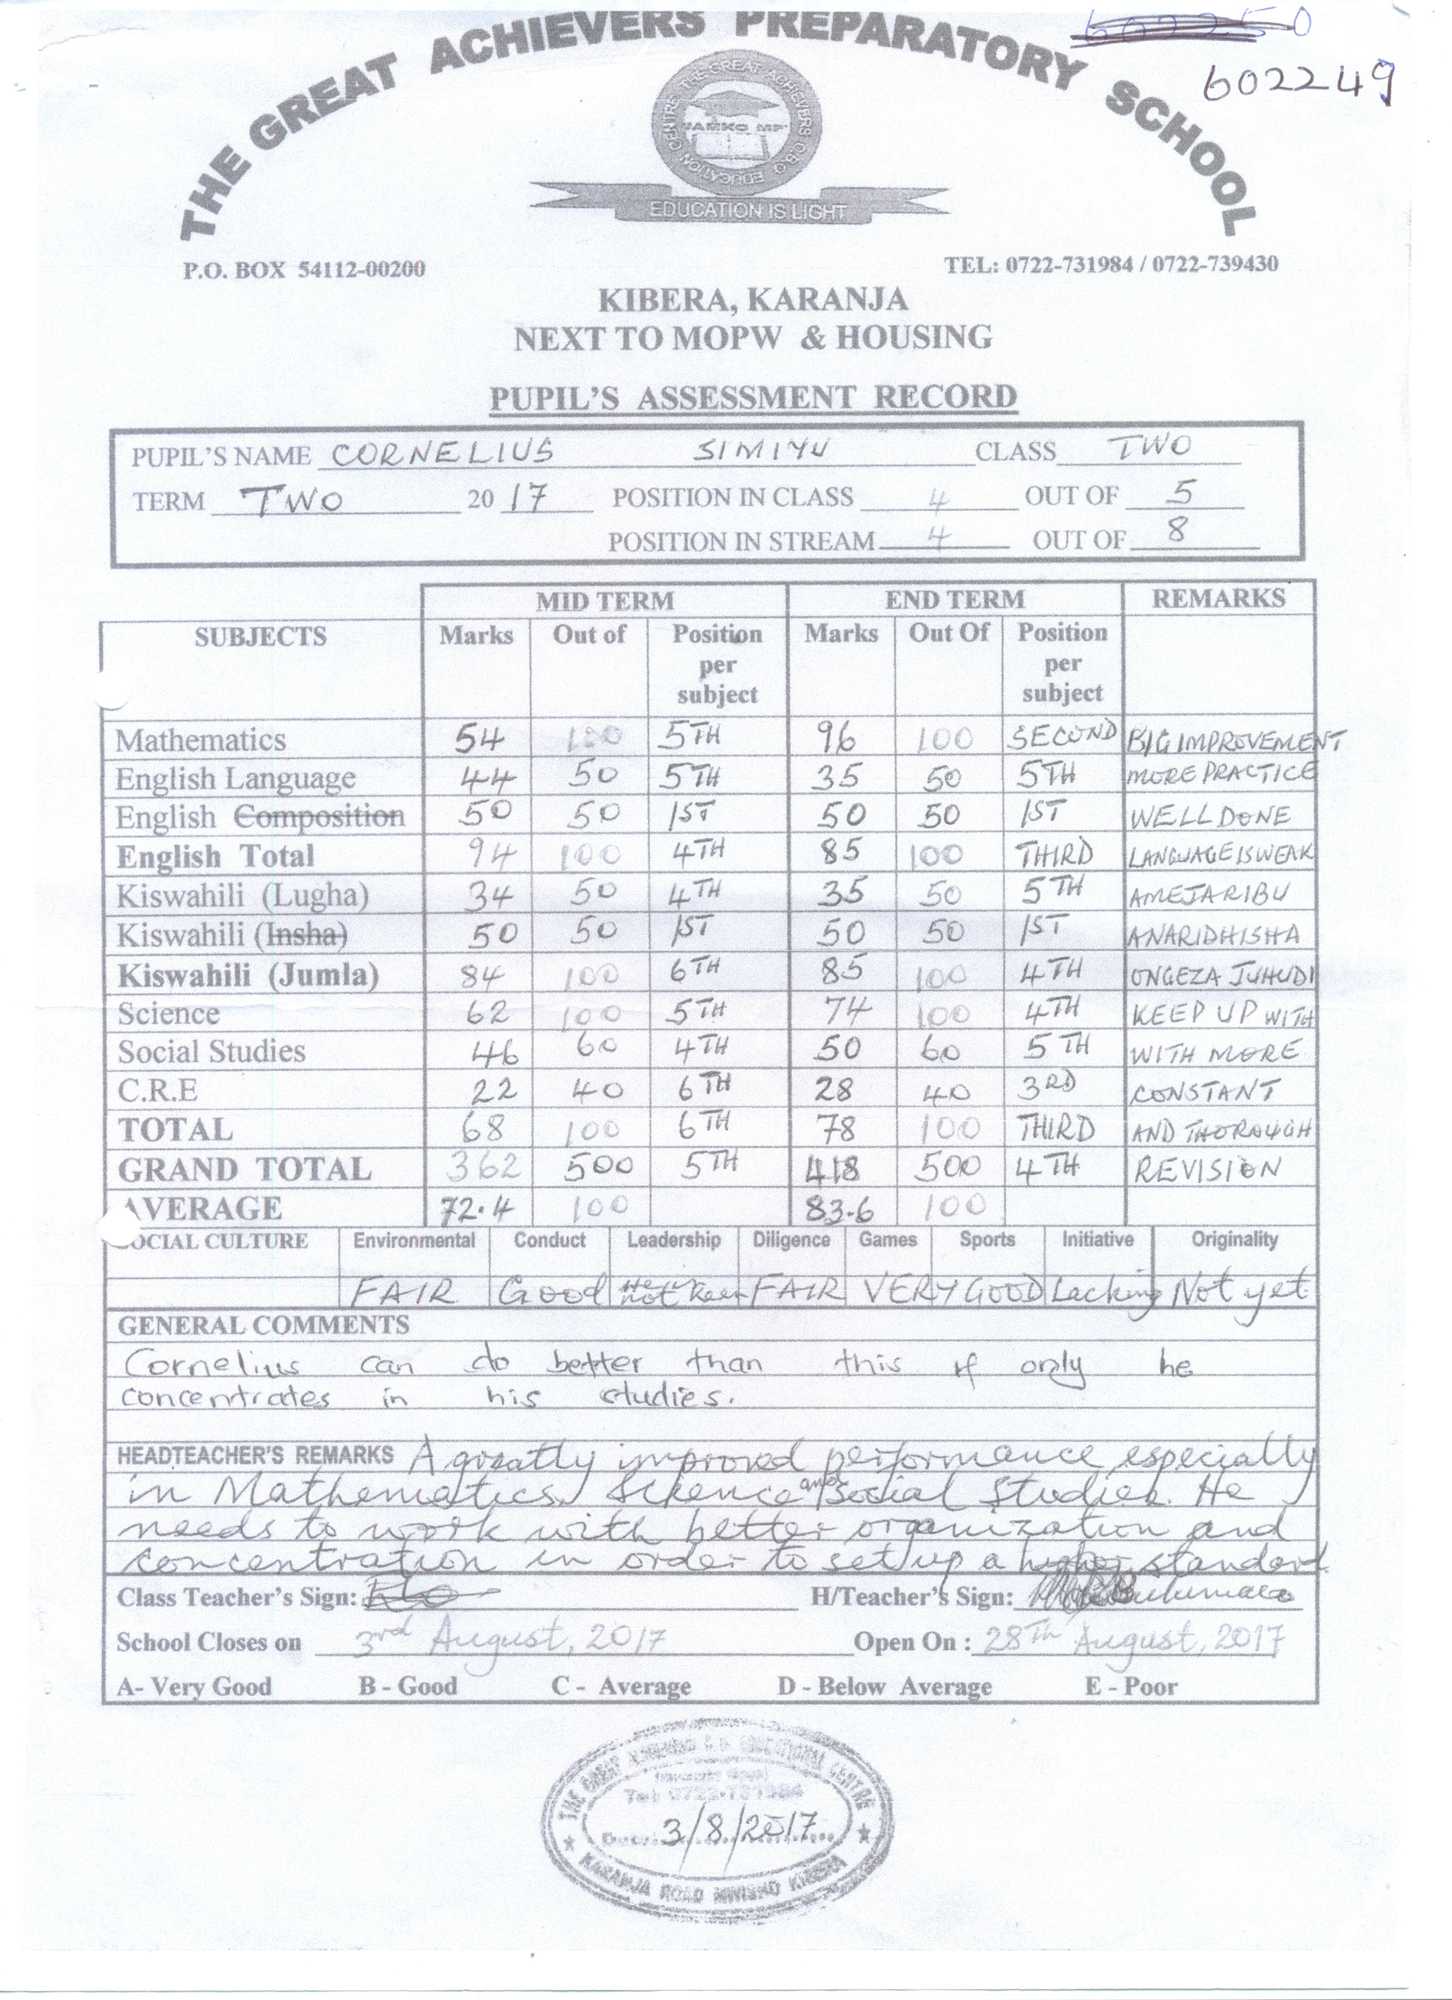 THE GREAT ACHIEVERS PREPARATORY SCHOOL
602250
602249
THE GREAT ACHIEVERS C.B.O EDUCATION CENTRE
EDUCATION IS LIGHT
P.O. BOX 54112-00200 TEL: 0722-731984 / 0722-739430
KIBERA, KARANJA
NEXT TO MOPW & HOUSING
PUPIL'S ASSESSMENT RECORD
PUPIL'S NAME CORNELIUS SIMIYU CLASS TWO
TERM TWO 2017 POSITION IN CLASS 4 OUT OF 5
POSITION IN STREAM 4 OUT OF 8
MID TERM END TERM REMARKS
SUBJECTS Marks Out of Position per subject Marks Out Of Position per subject
Mathematics 54 100 5TH 96 100 SECOND BIG IMPROVEMENT
English Language 44 50 5TH 35 50 5TH MORE PRACTICE
English Composition 50 50 1ST 50 50 1ST WELL DONE
English Total 94 100 4TH 85 100 THIRD LANGUAGE IS WEAK
Kiswahili (Lugha) 34 50 4TH 35 50 5TH AMEJARIBU
Kiswahili (Insha) 50 50 1ST 50 50 1ST ANARIDHISHA
Kiswahili (Jumla) 84 100 6TH 85 100 4TH ONGEZA JUHUDI
Science 62 100 5TH 74 100 4TH KEEP UP WITH
Social Studies 46 60 4TH 50 60 5TH WITH MORE
C.R.E 22 40 6TH 28 40 3RD CONSTANT
TOTAL 68 100 6TH 78 100 THIRD AND THOROUGH
GRAND TOTAL 362 500 5TH 418 500 4TH REVISION
AVERAGE 72.4 100 83.6 100
SOCIAL CULTURE Environmental Conduct Leadership Diligence Games Sports Initiative Originality
FAIR Good not keen FAIR VERY GOOD Lacking Not yet
GENERAL COMMENTS
Cornelius can do better than this if only he
concentrates in his studies.
HEADTEACHER'S REMARKS A greatly improved performance especially
in Mathematics, Science and Social Studies. He
needs to work with better organization and
concentration in order to set up a higher standard.
Class Teacher's Sign: H/Teacher's Sign:
School Closes on 3rd August, 2017 Open On : 28TH August, 2017
A- Very Good B - Good C - Average D - Below Average E - Poor
THE GREAT ACHIEVERS EDUCATIONAL CENTRE
Tel: 0722-731984
Date: 3/8/2017
KARANJA ROAD KIBERA